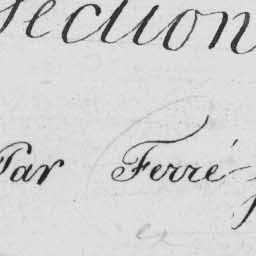 Section
Par Ferré